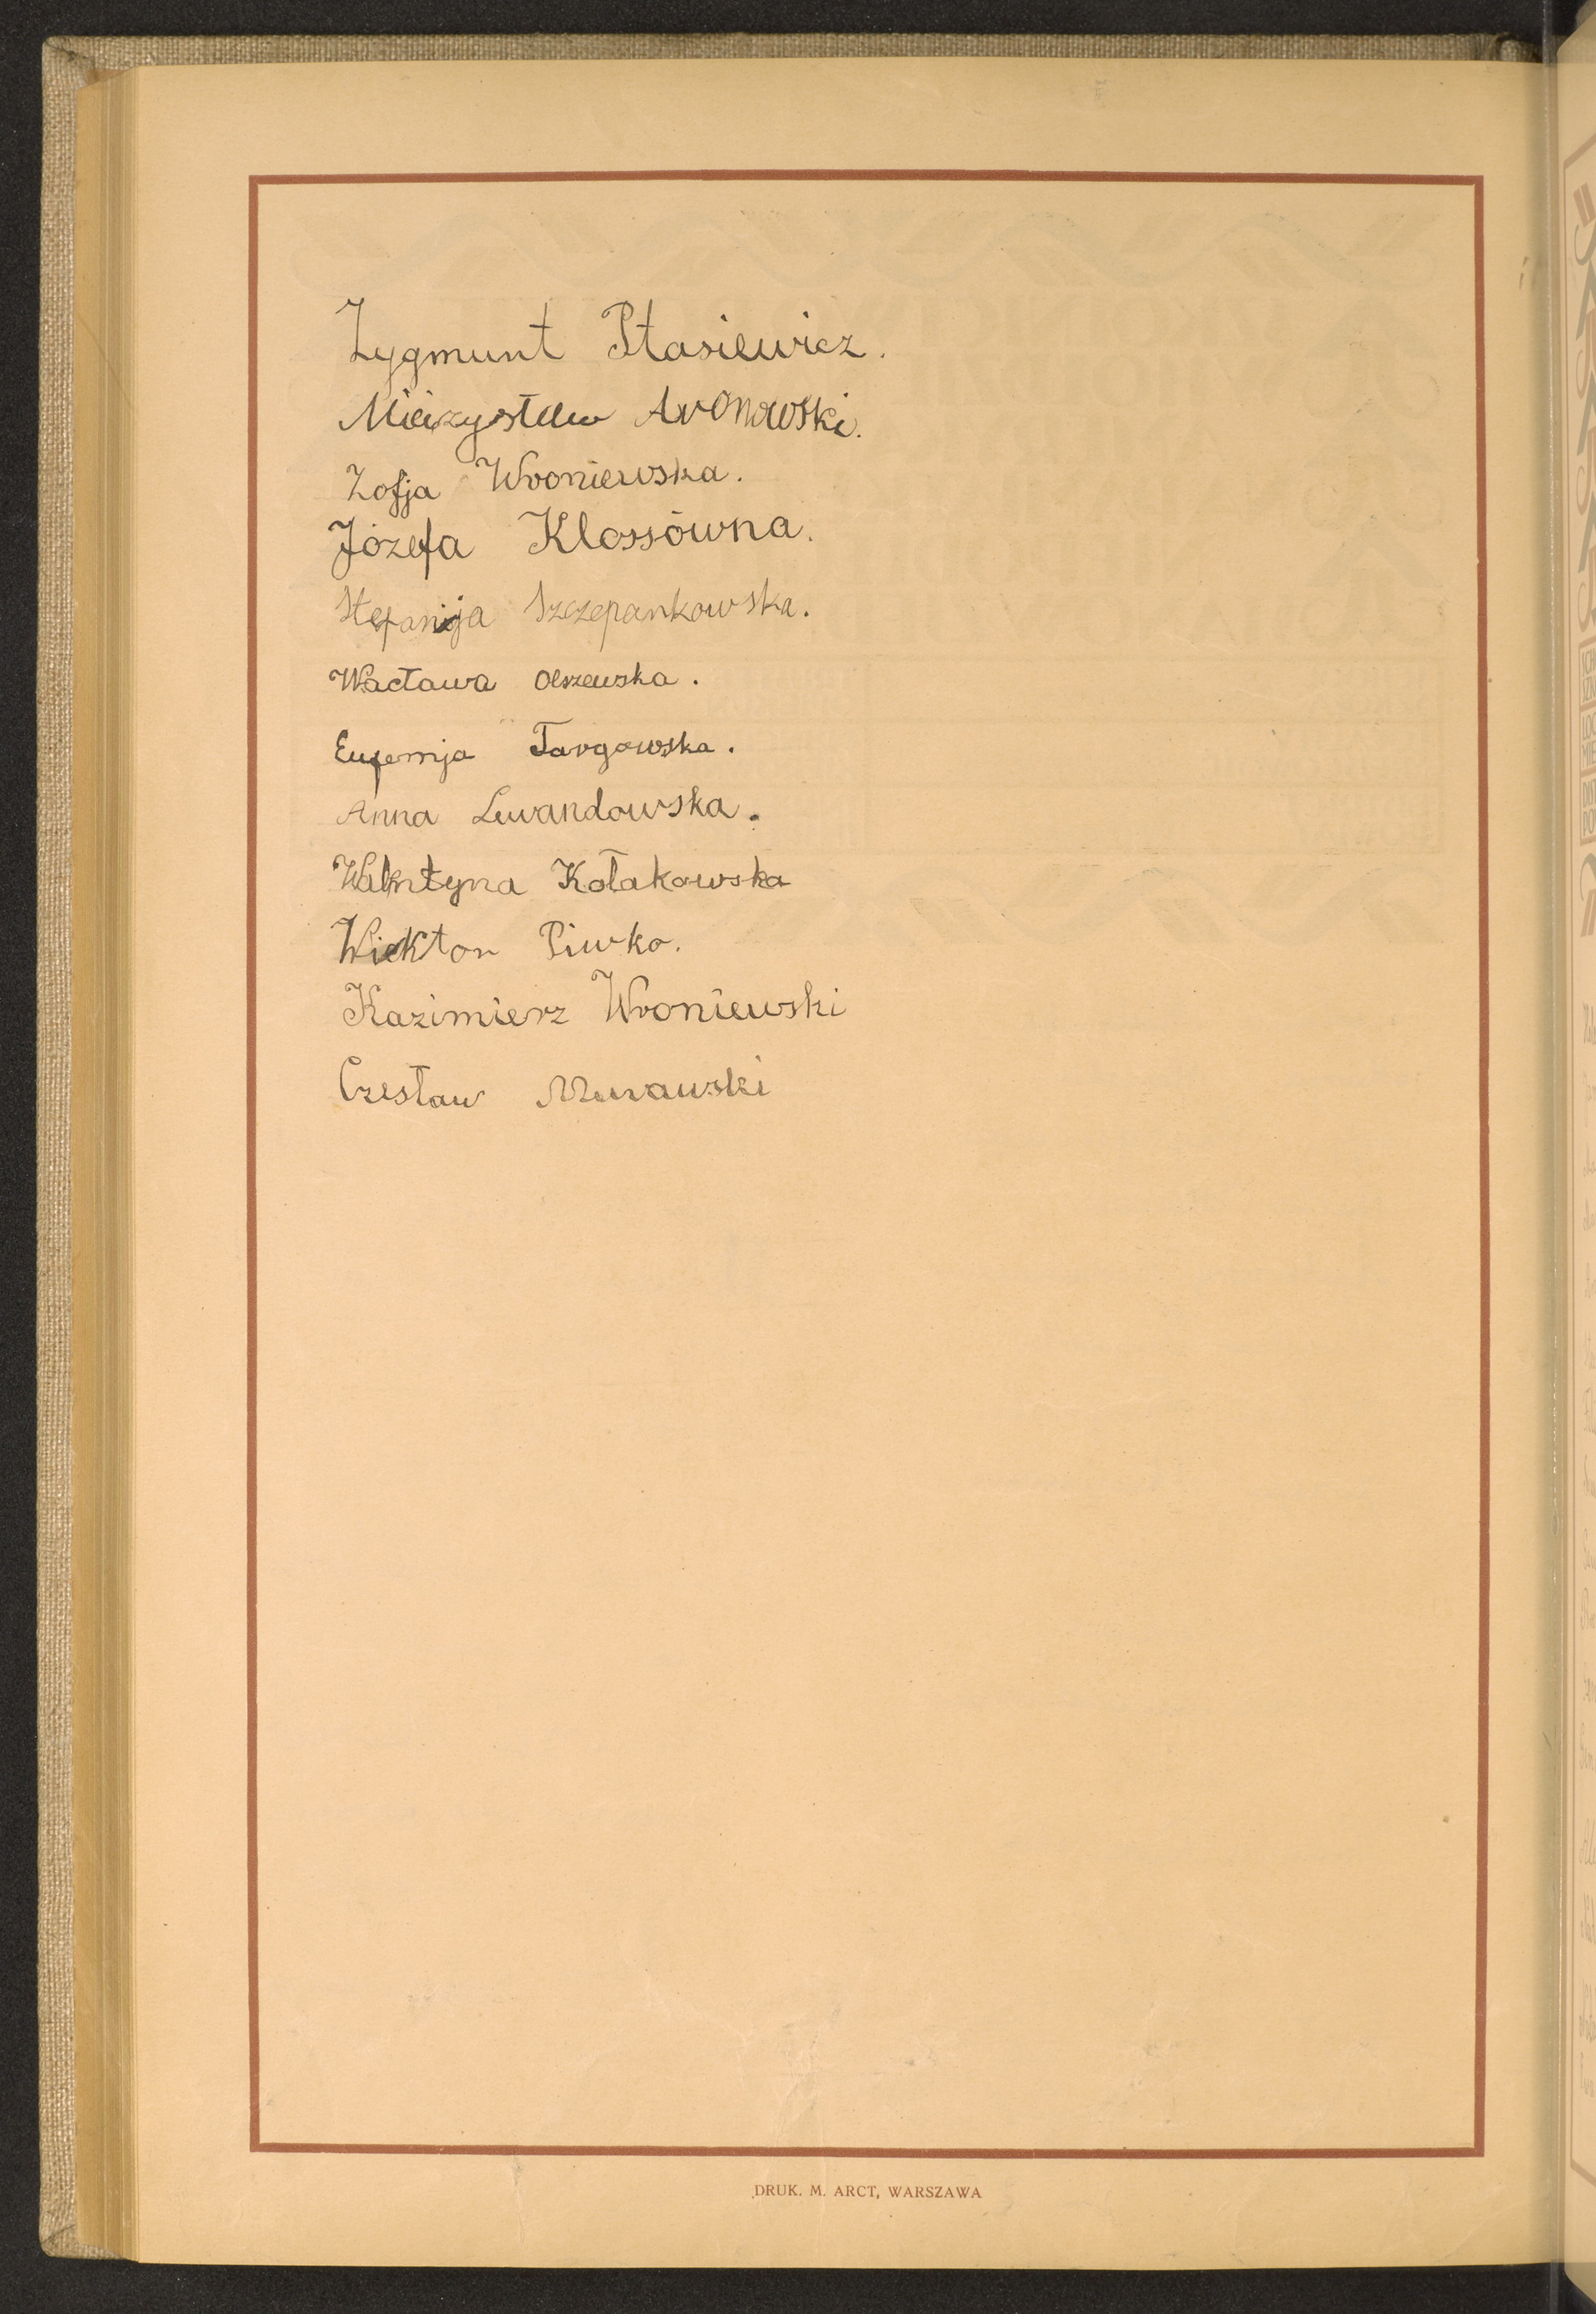 Zygmunt Ptasiewicz.
Mieczysław Aronowski.
Zofja Wroniewska.
Józefa Klossówna.
Stefanja Szczepankowska.
Wacława Olszewska.
Eufemja Targowska.
Anna Lewandowska.
Walentyna Kołakowska
Wiktor Piwko.
Kazimierz Wroniewski
Czesław Murawski
DRUK. M. ARCT, WARSZAWA